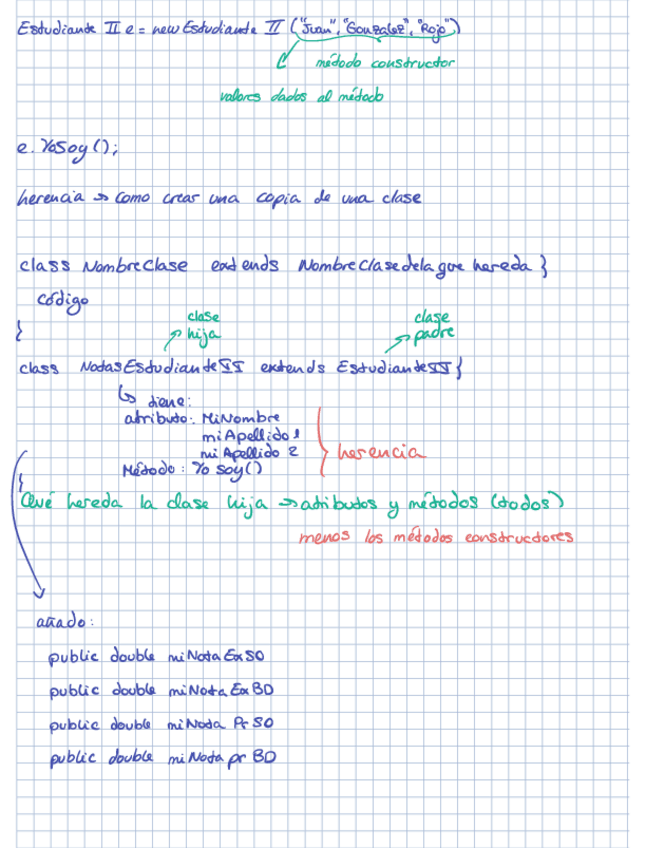 Estudiante II e = new Estudiante II ("Juan", "Gonzalez", "Rojo")
método constructor
valores dados al método
e. YoSoy();
herencia → como crear una copia de una clase
class NombreClase extends NombreClasedelaque hereda }
código
}
clase hija
clase padre
class NotasEstudianteII extends EstudianteII {
↳ tiene:
atributo: MiNombre
miApellido1
mi Apellido 2
Método: Yo soy()
herencia
}
Qué hereda la clase hija → atributos y métodos (todos)
menos los métodos constructores
añado:
public double miNotaExSO
public double miNotaExBD
public double miNota Pr SO
public double miNota pr BD